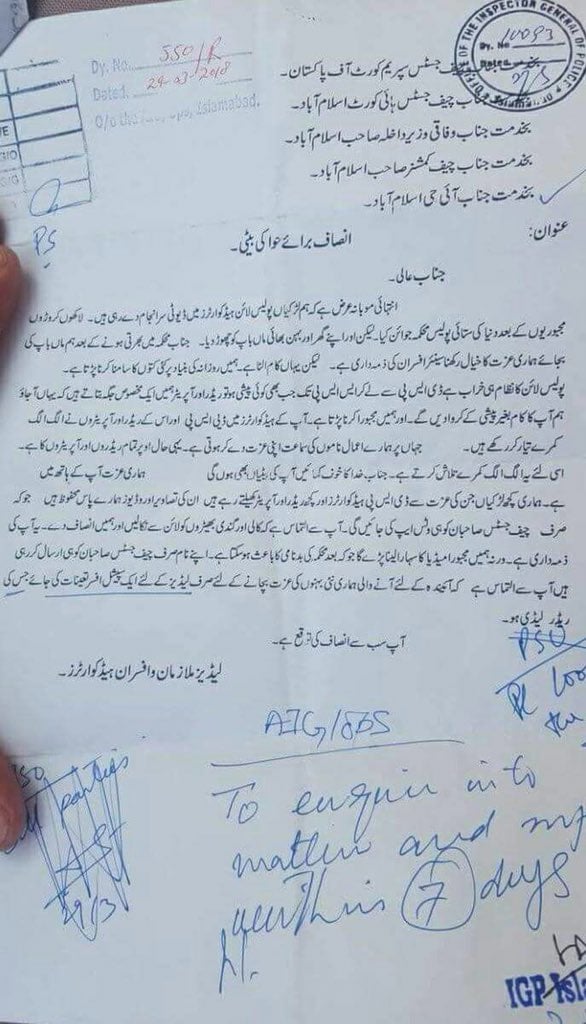 OFFICE OF THE INSPECTOR GENERAL OF POLICE
Dy. No 10093
Dated
Dy. No. 550/R
Dated. 29-03-2018
Islamabad.
چیف جسٹس سپریم کورٹ آف پاکستان۔
جناب چیف جسٹس ہائی کورٹ اسلام آباد۔
بخدمت جناب وفاقی وزیر داخلہ صاحب اسلام آباد۔
بخدمت جناب چیف کمشنر صاحب اسلام آباد۔
بخدمت جناب آئی جی اسلام آباد۔
PS
عنوان: انصاف برائے حوا کی بیٹی۔
جناب عالی۔
انتہائی مودبانہ عرض ہے کہ ہم لڑکیاں پولیس لائن ہیڈ کوارٹرز میں ڈیوٹی سرانجام دے رہی ہیں۔ لاکھوں کروڑوں
مجبوریوں کے بعد دنیا کی ستائی پولیس محکمہ جوائن کیا۔ لیکن اور اپنے گھر اور بہن بھائی ماں باپ کو چھوڑ دیا۔ جناب محکمہ میں بھرتی ہونے کے بعد ہم ماں باپ کی
بجائے ہماری عزت کا خیال رکھنا سینئر افسران کی ذمہ داری ہے۔ لیکن یہاں کا م الٹا ہے۔ ہمیں روزانہ کی بنیاد پر کئی کتوں کا سامنا کرنا پڑتا ہے۔
پولیس لائن کا نظام ہی خراب ہے ڈی ایس پی سے لے کر ایس ایس پی تک جب بھی کوئی پیشی ہو تو ریڈر اور آپریٹر ہمیں ایک مخصوص جگہ بتاتے ہیں کہ یہاں آجاؤ
ہم آپ کا کام بغیر پیشی کے کروادیں گے۔ اور ہمیں مجبورا کرنا پڑتا ہے۔ آپ کے ہیڈ کوارٹرز میں ڈی ایس پی اور اس کے ریڈر اور آپریٹروں نے الگ الگ
کمرے تیار کر رکھے ہیں۔ جہاں پر ہمارے اعمال ناموں کی سماعت اپنی عزت دے کر ہوتی ہے۔ یہی حال اوپر تمام ریڈروں اور آپریٹروں کا ہے۔
اسی لئے یہ الگ الگ کمرے تلاش کرتے ہے۔ جناب خدا کا خوف کھائیں آپ کی بیٹیاں بھی ہوں گی ہماری عزت آپ کے ہاتھ میں
ہے۔ ہماری کچھ لڑکیاں جن کی عزت سے ڈی ایس پی ہیڈ کوارٹرز اور کچھ ریڈر اور آپریٹر کھیلتے رہے ہیں ان کی تصاویر اور وڈیوز ہمارے پاس محفوظ ہیں جو کہ
صرف چیف جسٹس صاحبان کو ہی وٹس ایپ کی جائیں گی۔ آپ سے التماس ہے کہ کالی اور گندی بھیڑوں کو لائن سے نکالیں اور ہمیں انصاف دے۔ یہ آپ کی
ذمہ داری ہے۔ ورنہ ہمیں مجبورا میڈیا کا سہارا لینا پڑے گا جو کہ بعد محکمہ کی بدنامی کا باعث ہو سکتا ہے۔ اپنے نام صرف چیف جسٹس صاحبان کو ہی ارسال کر رہی
ہیں آپ سے التماس ہے کہ آئیندہ کے لئے آنے والی ہماری نئی بہنوں کی عزت بچانے کے لئے صرف لیڈیز کے لئے ایک سپیشل افسر تعینات کی جائے جس کی
ریڈر لیڈی ہو۔
آپ سب سے انصاف کی توقع ہے۔
لیڈیز ملازمان و افسران ہیڈ کوارٹرز۔
PSO
AIG/
To enquire into
matter and
within 7 days
parties
29/3
IGP Isla